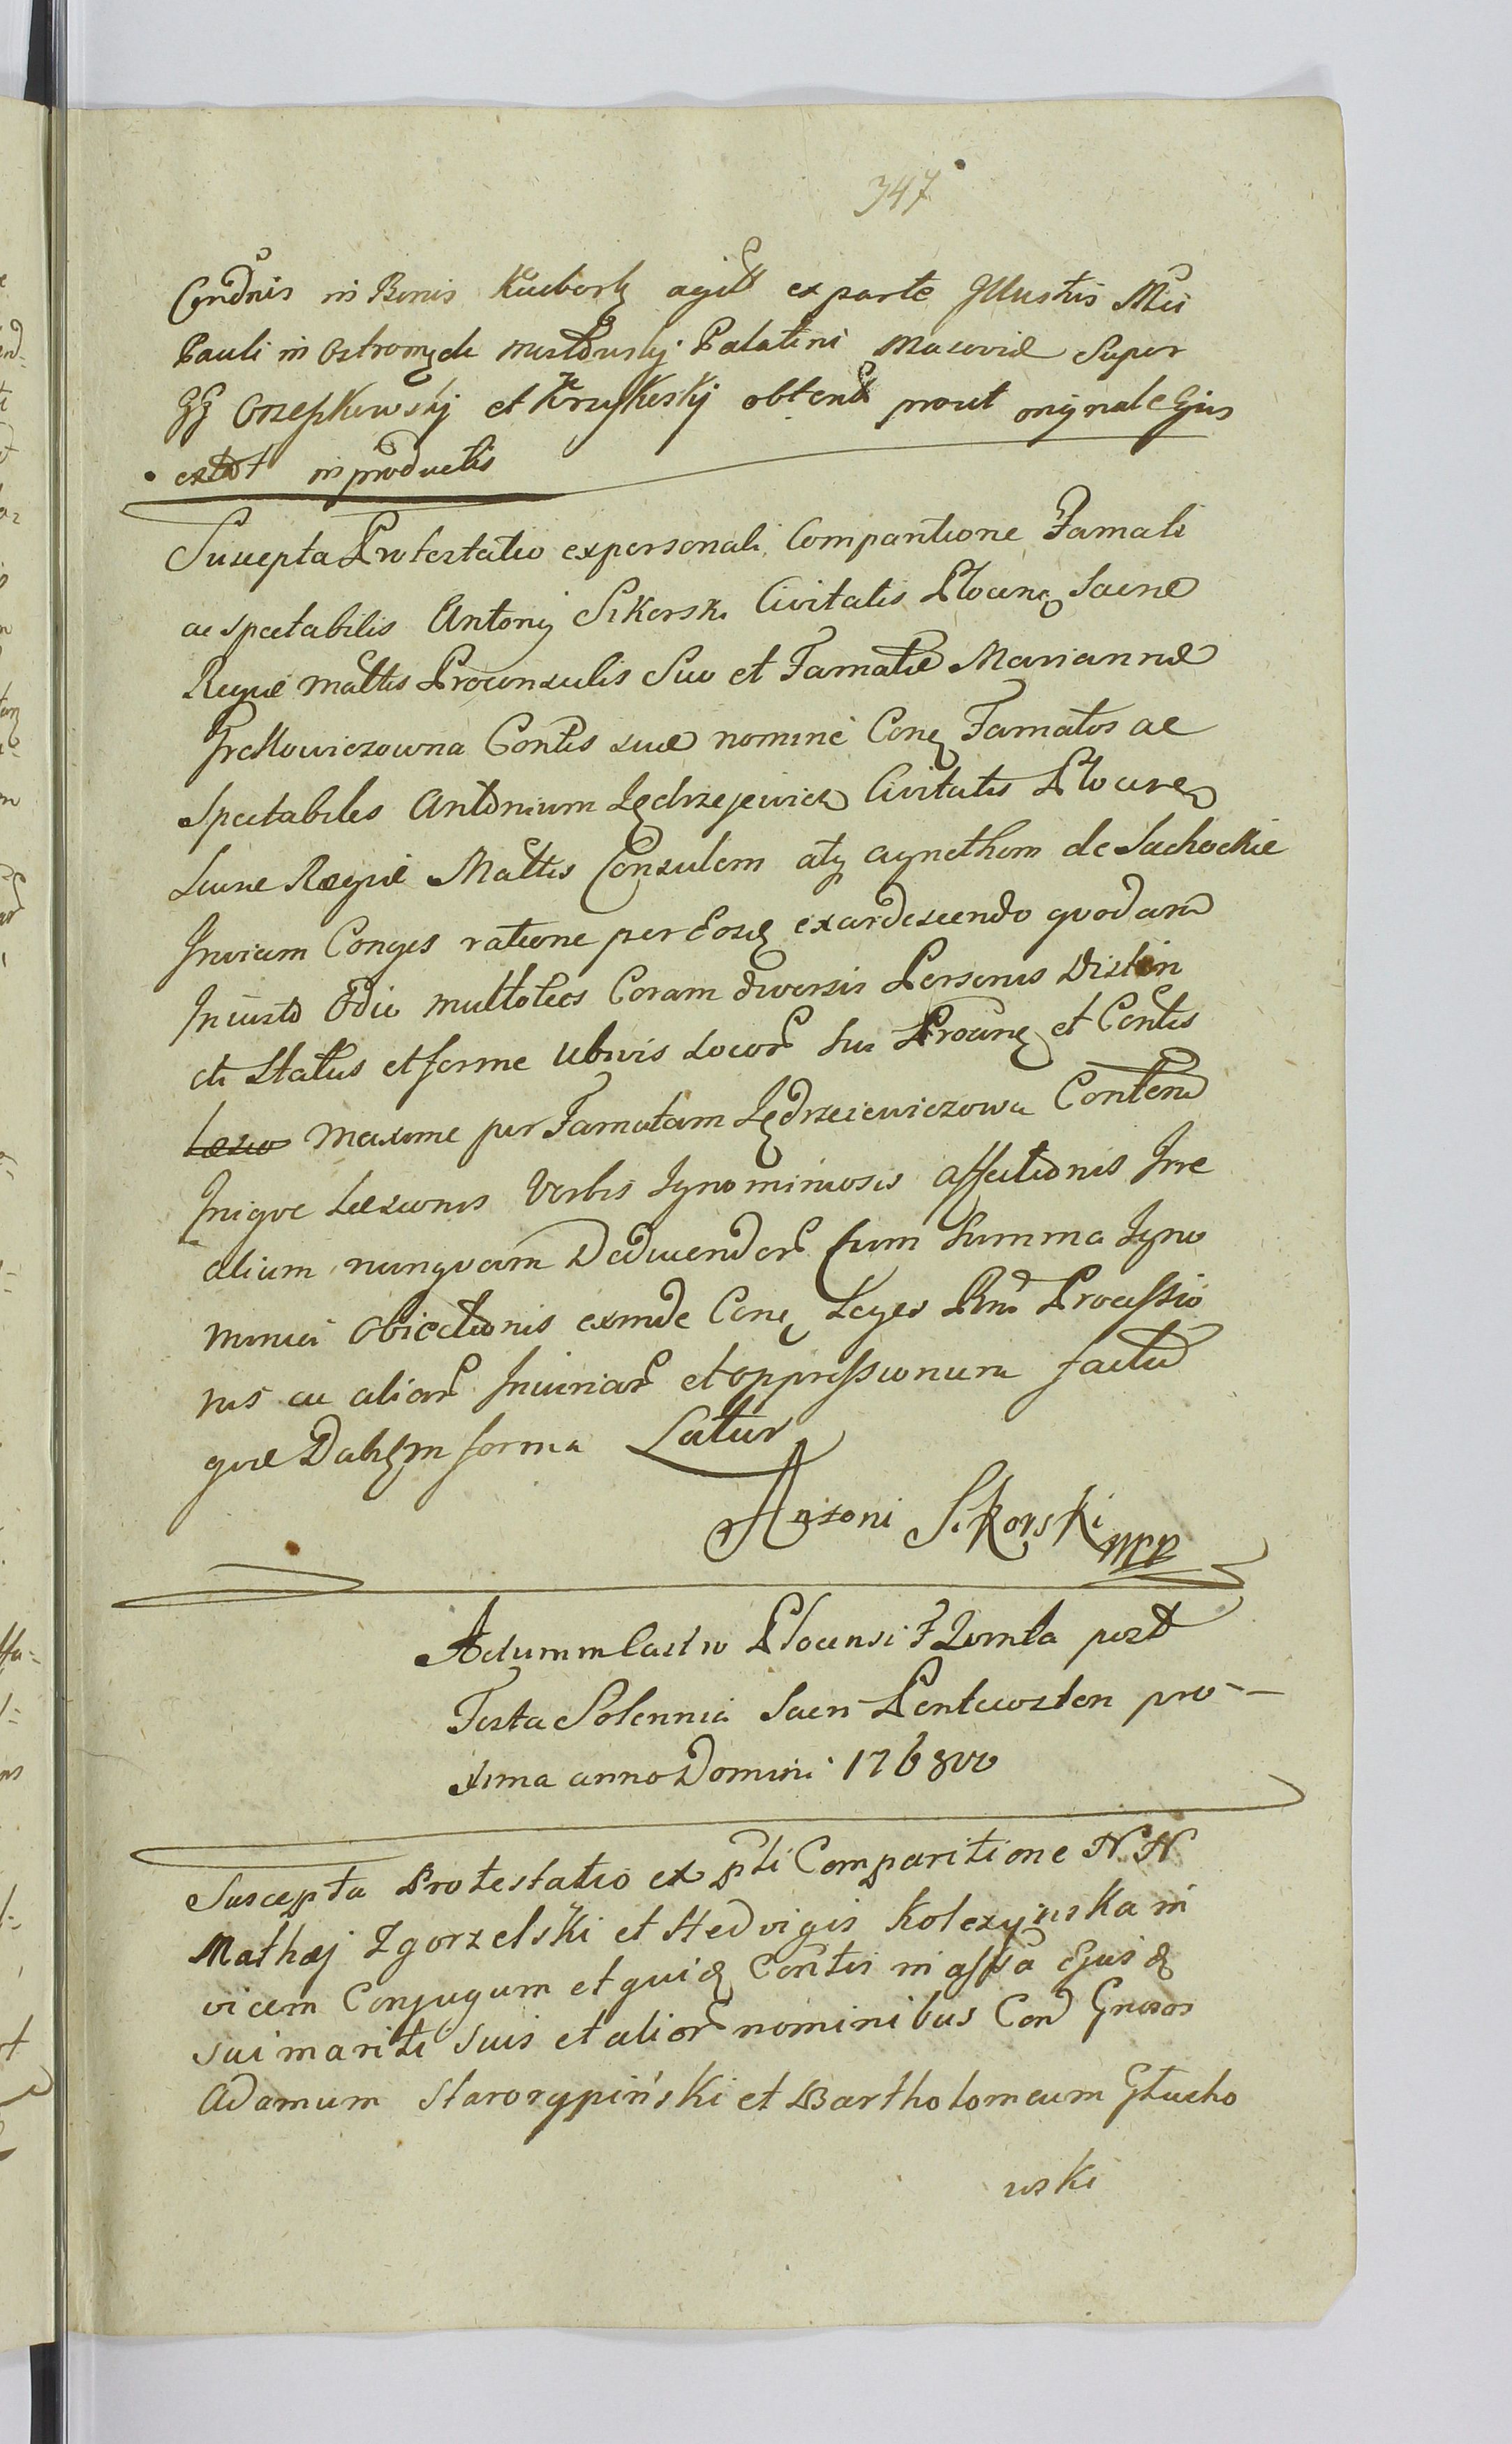 347
Condnis in Bonis Kuchary agitt ex parte Illustris Mci
Pauli in Ostromęck Mostowskj Palatini Masoviæ super
GG Orzeszkowskj et Krzyskoskj obtent prout originale Ejus
extat in productis
Suscepta Protestatio ex personali Comparitione Famati
ac spectabilis Antonij Sikorski Civitatis Plocen Sacræ
Regiæ Mattis Proconsulis Suo et Famatæ Mariannæ
Contis suæ nomine Con Famatos ac
Spectabiles Antonium Jędrzejewicz Civitatis Plocen
Sacræ Regiæ Mattis Consulem atq Agnethem de Suchockie
Invicem Conges ratione per Eosd exardescendo quodam
Iniusto Odio multoties Coram diversis Personis Distin
cti Status et formæ Ubivis Locor sui Procun et Contis
Læsio Maxime per Famatam Jędrzeiewiczowa Conten
Inique Læsionis Verbis Ignominiosis affectionis Irre
alium nunquam Deducendor Cum Summa Igno
miniei Obiectionis exinde Con Leges Processio
nis ac alior Iniuriar et oppressionum factu
quæ Dabr in forma Latur
Antoni Sikorski mpp
Actum in Castro Plocensi F post
Festa Solennia Sacri Pentecosten pro-
xima anno Domini 1768vo
Suscepta Protestatio ex pli Comparitione NN
Mathæj Zgorzelski et Hedvigis Kolczyńska in
vicem Conjugum et quid Contis in assa Ejusd
sui mariti suis et alior nominibus Con Gnosos
Adamum Starorypiński et Bartholomeum Głucho
wski